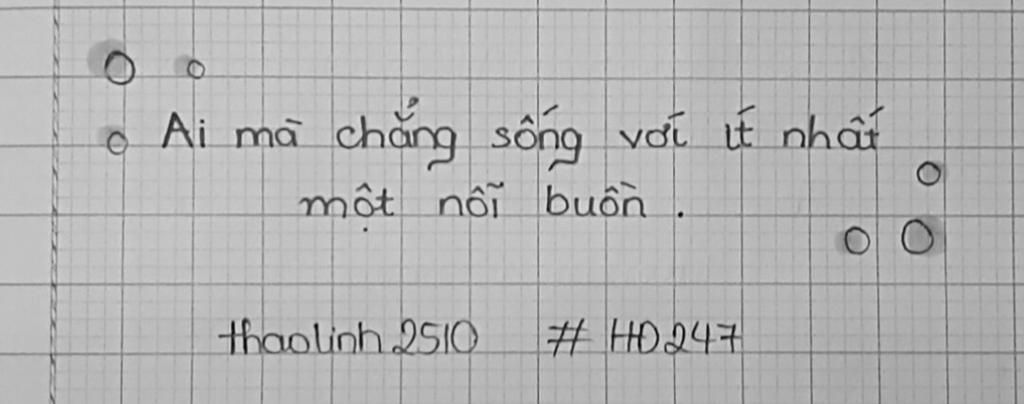 Ai mà chẳng sống với ít nhất
một nỗi buồn .
thaolinh2510 # HD247